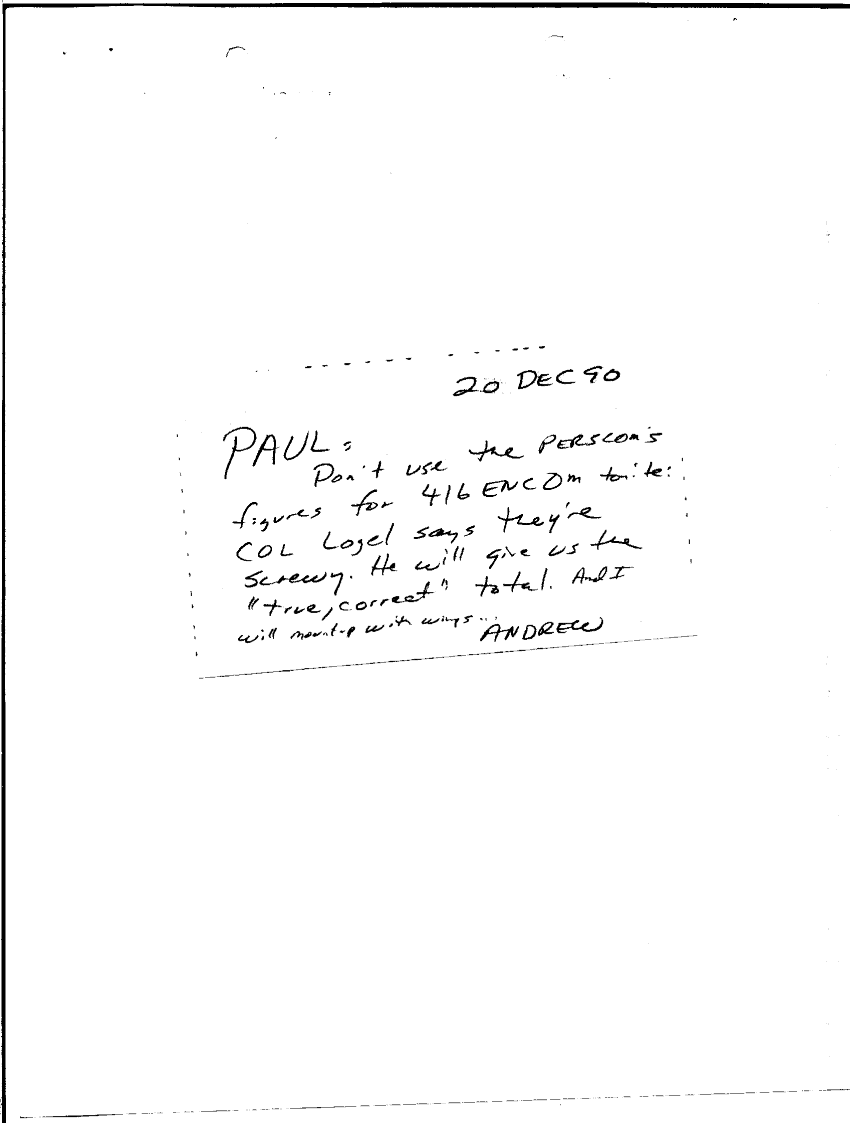 20 DEC 90
PAUL:
Don't use the PERSCOM's
figures for 416 ENCOM tonite:
COL Logel says they're
screwy. He will give us the
"true, correct" total. And I
will mount up with wings...
ANDREW